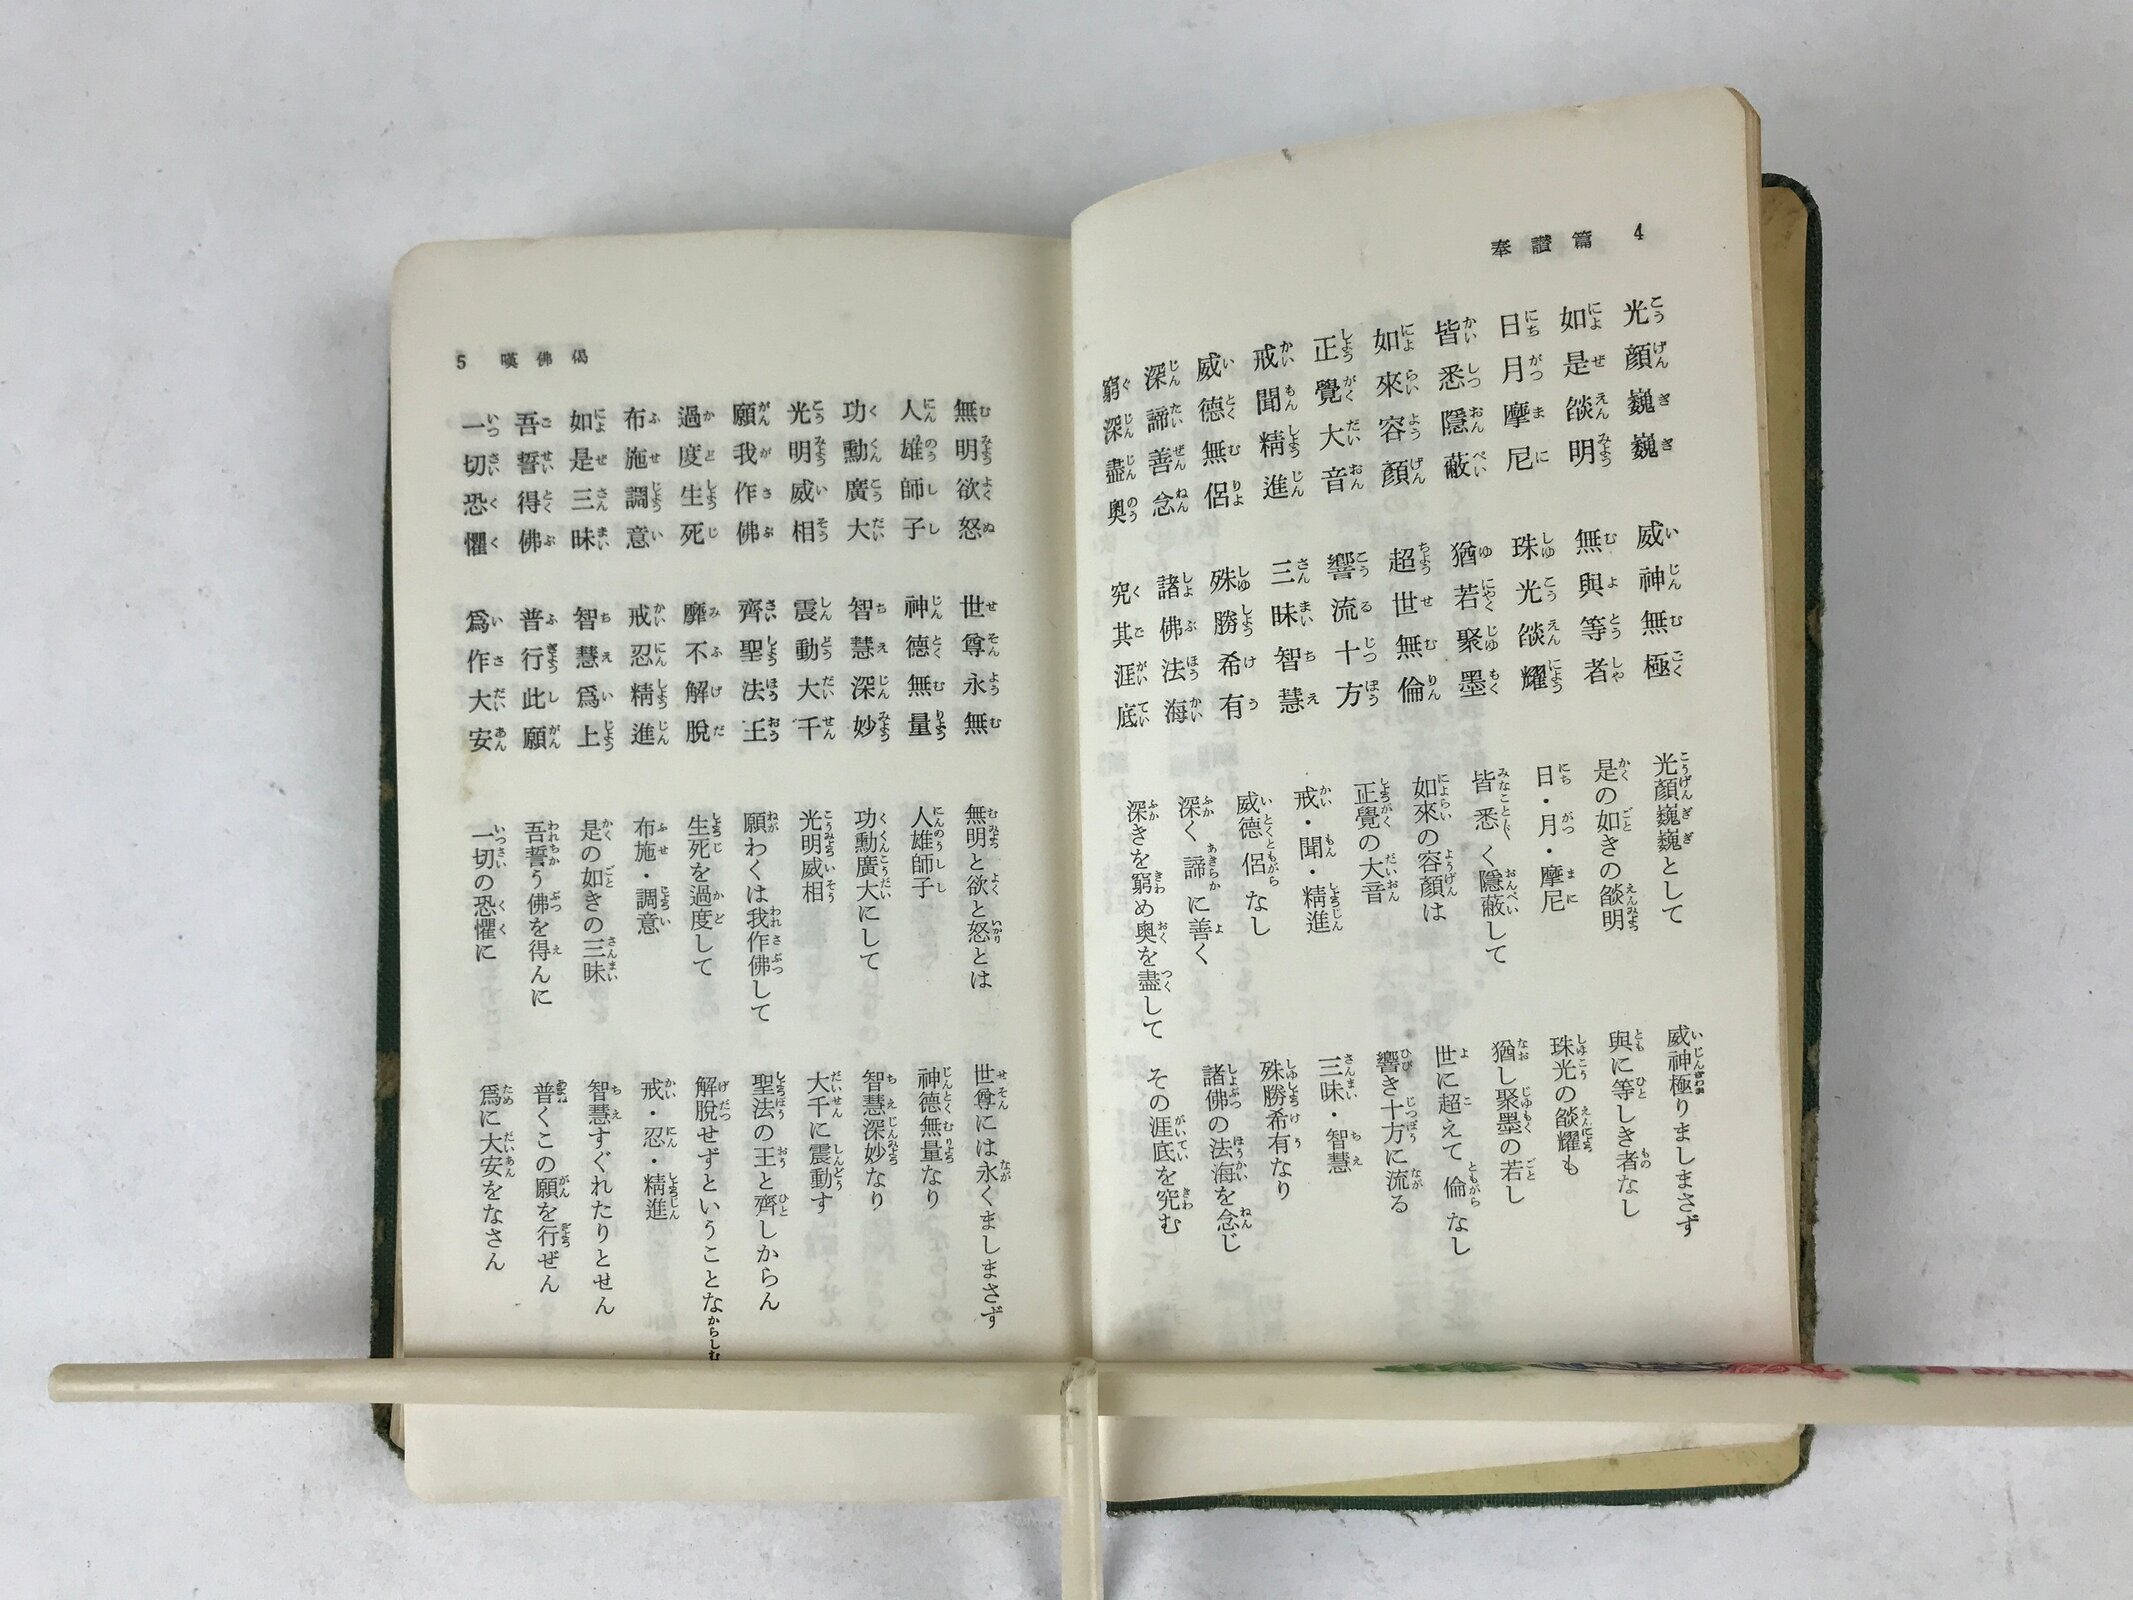 奉讃篇 4
光顔巍巍 威神無極 光顔巍巍として 威神極りましまさず
如是燄明 無與等者 是の如きの燄明 與に等しき者なし
日月摩尼 珠光燄耀 日・月・摩尼 珠光の燄耀も
皆悉隱蔽 猶若聚墨 皆悉く隱蔽して 猶し聚墨の若し
如來容顔 超世無倫 如來の容顔は 世に超えて倫なし
正覺大音 響流十方 正覺の大音 響き十方に流る
戒聞精進 三昧智慧 戒・聞・精進 三昧・智慧
威德無侶 殊勝希有 威德侶なし 殊勝希有なり
深諦善念 諸佛法海 深く諦に善く 諸佛の法海を念じ
窮深盡奧 究其涯底 深きを窮め奧を盡して その涯底を究む
5 嘆佛偈
無明欲怒 世尊永無 無明と欲と怒とは 世尊には永くましまさず
人雄師子 神德無量 人雄師子 神德無量なり
功勳廣大 智慧深妙 功勳廣大にして 智慧深妙なり
光明威相 震動大千 光明威相 大千に震動す
願我作佛 齊聖法王 願わくは我作佛して 聖法の王と齊しからん
過度生死 靡不解脫 生死を過度して 解脫せずということな からしむ
布施調意 戒忍精進 布施・調意 戒・忍・精進
如是三昧 智慧爲上 是の如きの三昧 智慧すぐれたりとせん
吾誓得佛 普行此願 吾誓う佛を得んに 普くこの願を行ぜん
一切恐懼 爲作大安 一切の恐懼に 爲に大安をなさん